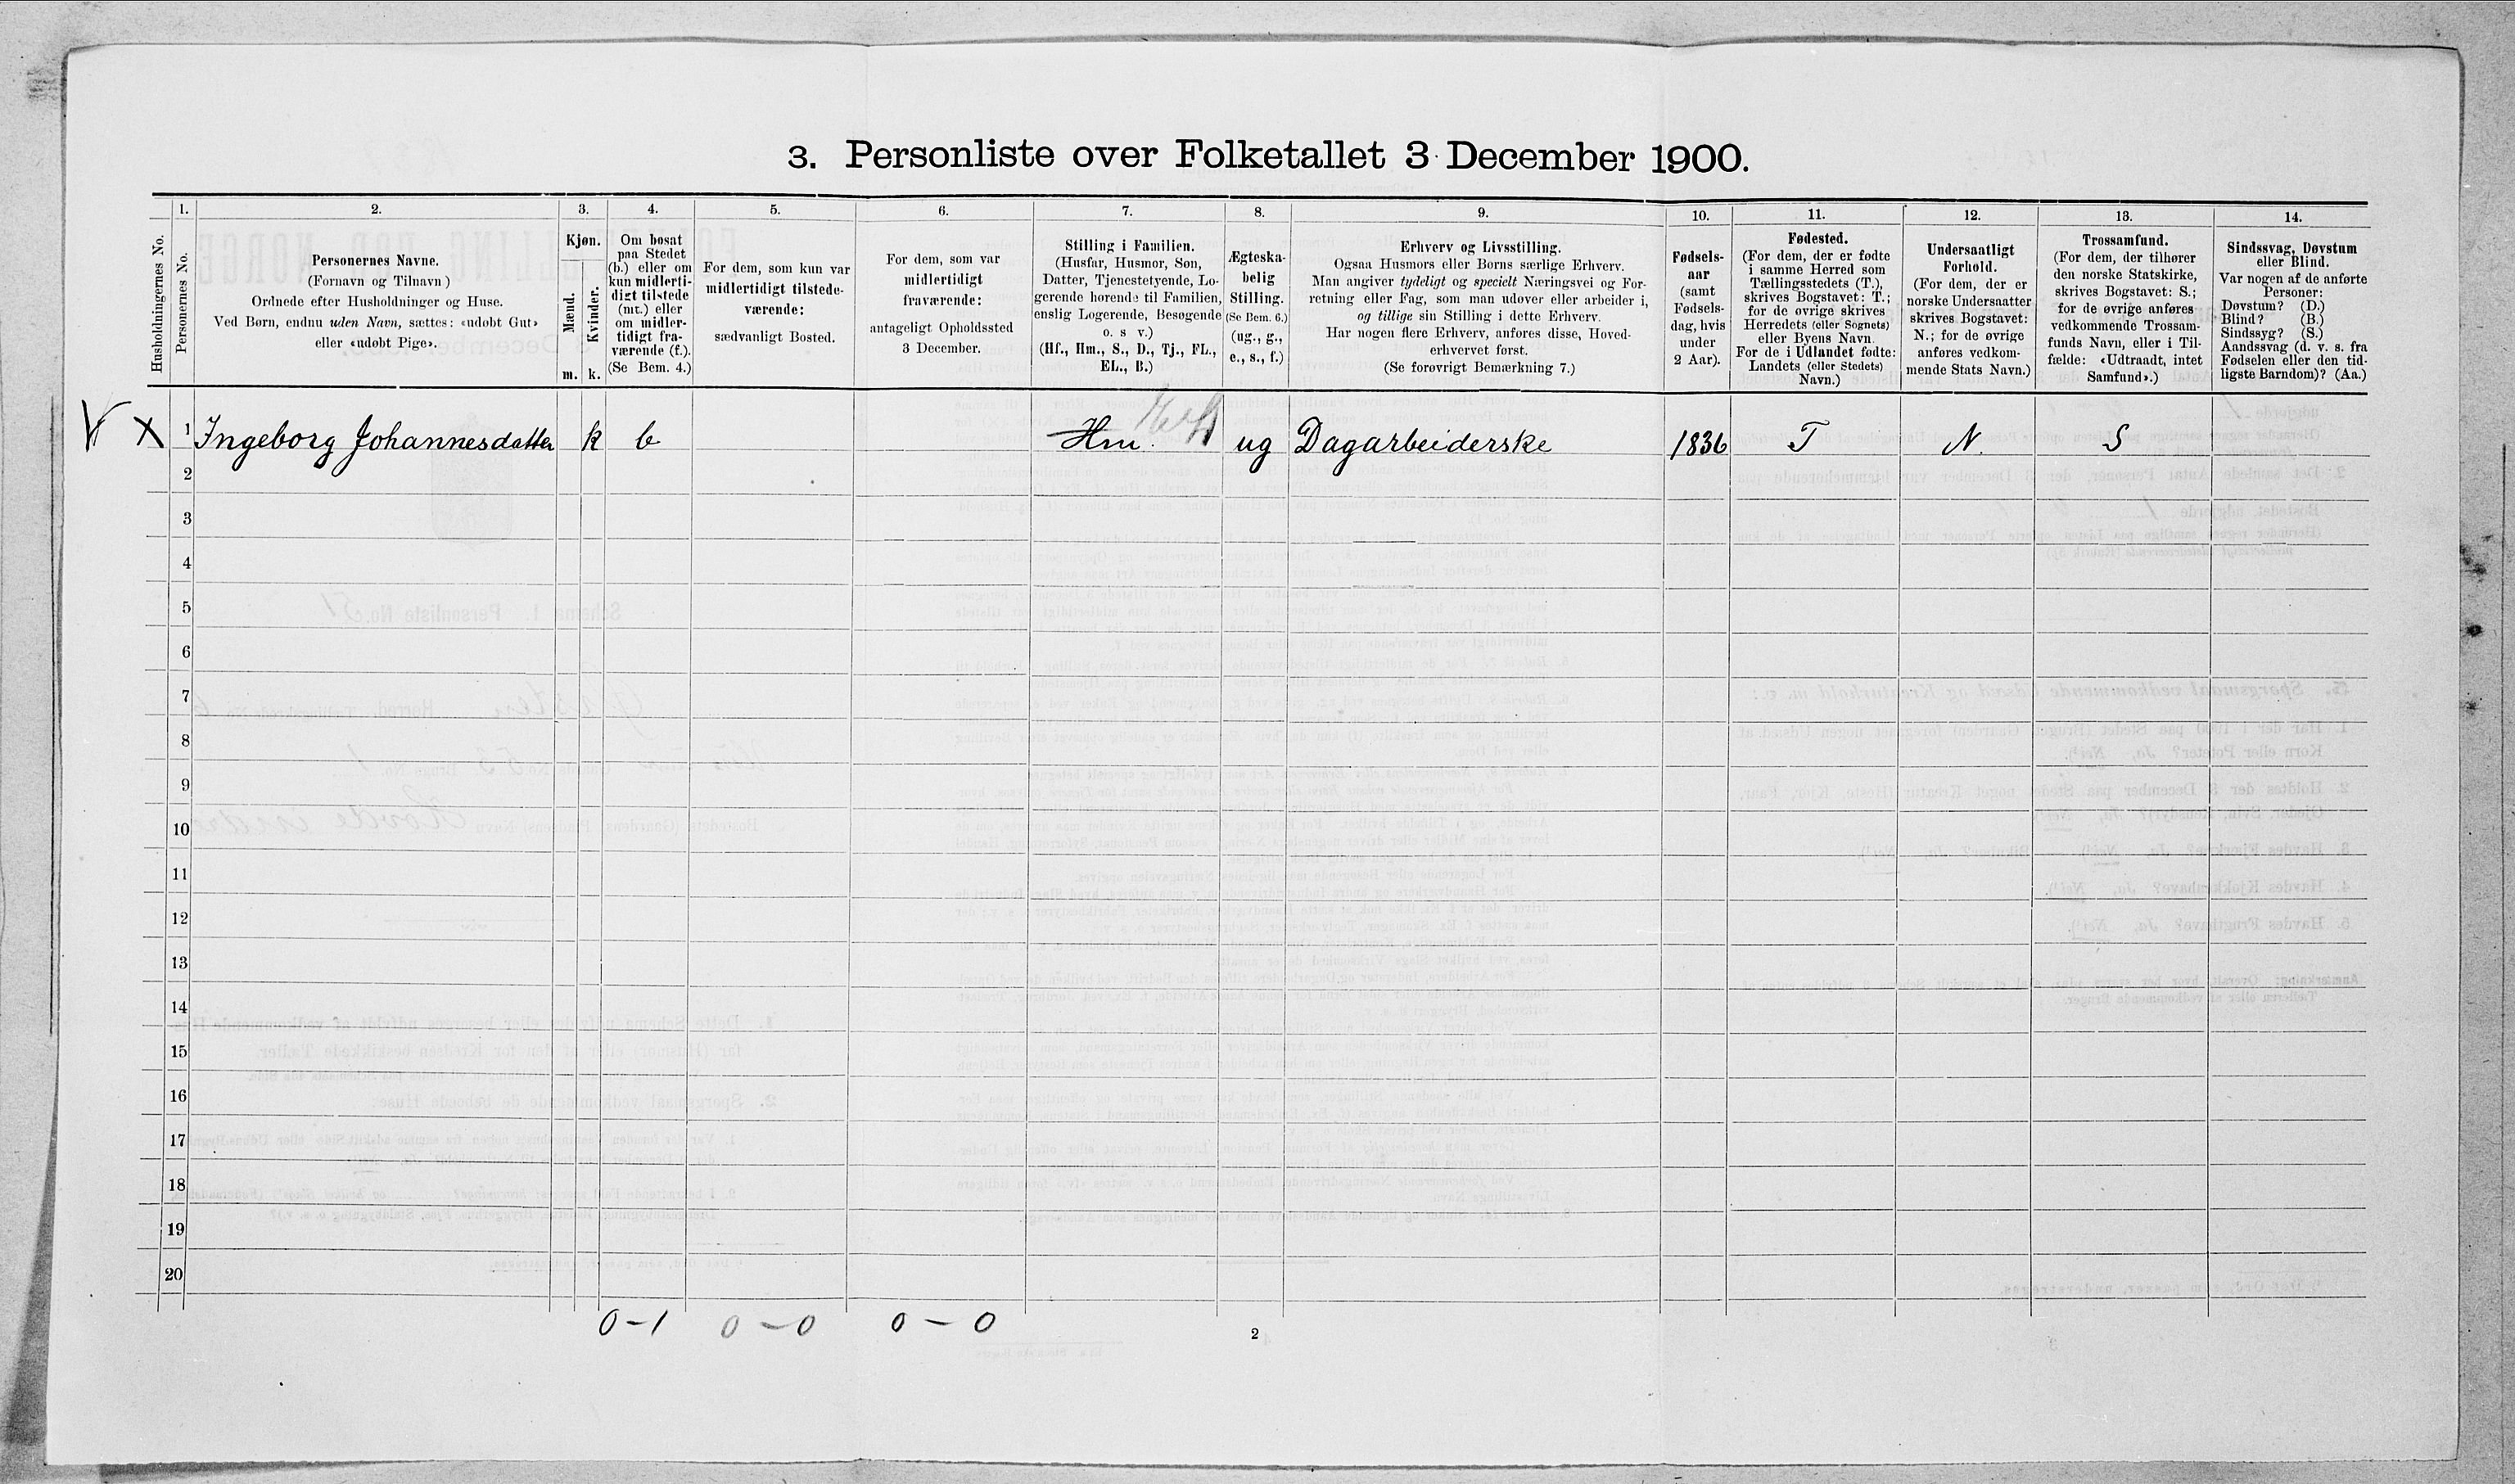 3. Personliste over Folketallet 3 December 1900.
Husholdningernes No.
1.
Personernes No.
2.
Personernes Navne.
(Fornavn og Tilnavn)
Ordnede efter Husholdninger og Huse.
Ved Børn, endnu uden Navn, sættes: «udøbt Gut»
eller «udøbt Pige».
3.
Kjøn.
Mænd.
Kvinder.
m. k.
4.
Om bosat
paa Stedet
(b.) eller om
kun midlerti-
digt tilstede
(mt.) eller
om midler-
tidigt fra-
værende (f.).
(Se Bem. 4.)
5.
For dem, som kun var
midlertidigt tilstede-
værende:
sædvanligt Bosted.
6.
For dem, som var
midlertidigt
fraværende:
antageligt Opholdssted
3 December.
7.
Stilling i Familien.
(Husfar, Husmor, Søn,
Datter, Tjenestetyende, Lo-
gerende hørende til Familien,
enslig Logerende, Besøgende
o. s v.)
(Hf., Hm., S., D., Tj., FL.,
EL., B.)
8.
Ægteska-
belig
Stilling.
(Se Bem. 6.)
(ug., g.,
e., s., f.)
9.
Erhverv og Livsstilling.
Ogsaa Husmors eller Børns særlige Erhverv.
Man angiver tydeligt og specielt Næringsvei og For-
retning eller Fag, som man udøver eller arbeider i,
og tillige sin Stilling i dette Erhverv.
Har nogen flere Erhverv, anføres disse, Hoved-
erhvervet først.
(Se forøvrigt Bemærkning 7.)
10.
Fødsels-
aar
(samt
Fødsels-
dag, hvis
under
2 Aar).
11.
Fødested.
(For dem, der er fødte
i samme Herred som
Tællingsstedets (T.),
skrives Bogstavet: T.;
for de øvrige skrives
Herredets (eller Sognets)
eller Byens Navn.
For de i Udlandet fødte:
Landets (eller Stedets)
Navn.)
12.
Undersaatligt
Forhold.
(For dem, der er
norske Undersaatter
skrives Bogstavet:
N.; for de øvrige
anføres vedkom-
mende Stats Navn.)
13.
Trossamfund.
(For dem, der tilhører
den norske Statskirke,
skrives Bogstavet: S.;
for de øvrige anføres
vedkommende Trossam-
funds Navn, eller i Til-
fælde: «Udtraadt, intet
Samfund».)
14.
Sindssvag, Døvstum
eller Blind.
Var nogen af de anførte
Personer:
Døvstum? (D.)
Blind? (B.)
Sindssyg? (S.)
Aandssvag (d. v. s. fra
Fødselen eller den tid-
ligste Barndom)? (Aa.)
X 1 Ingeborg Johannesdatter k b Hm. ug Dagarbeiderske 1836 T N. S
2
3
4
5
6
7
8
9
10
11
12
13
14
15
16
17
18
19
20
0-1 0-0 0-0
2